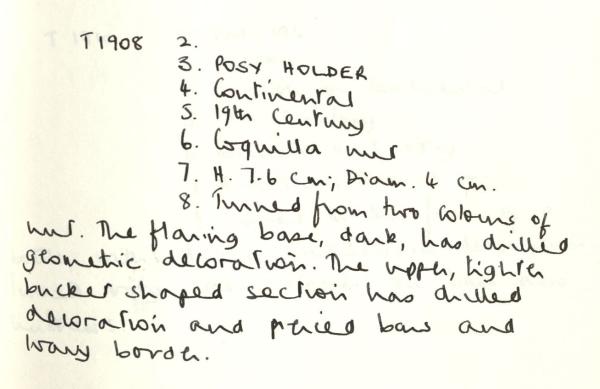 T1908 2.
3. POSY HOLDER
4. Continental
5. 19th Century
6. Coquilla nut
7. H. 7.6 cm; Diam. 4 cm.
8. Turned from two colours of
nut. The flaring base, dark, has drilled
geometric decoration. The upper, lighter
bucket shaped section has drilled
decoration and pierced bars and
wavy border.